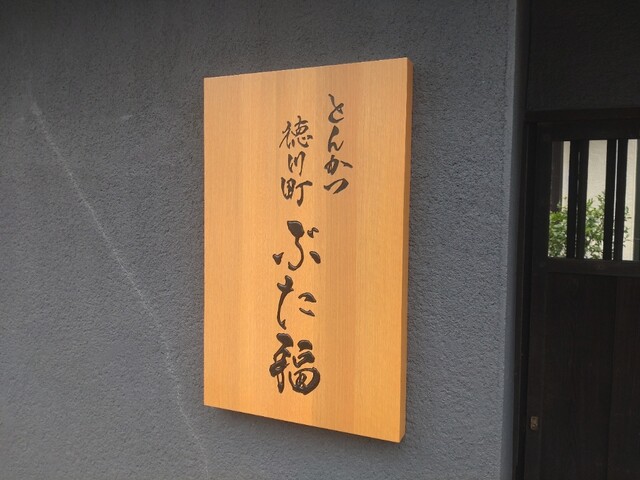 とんかつ
徳川町
ぶた福